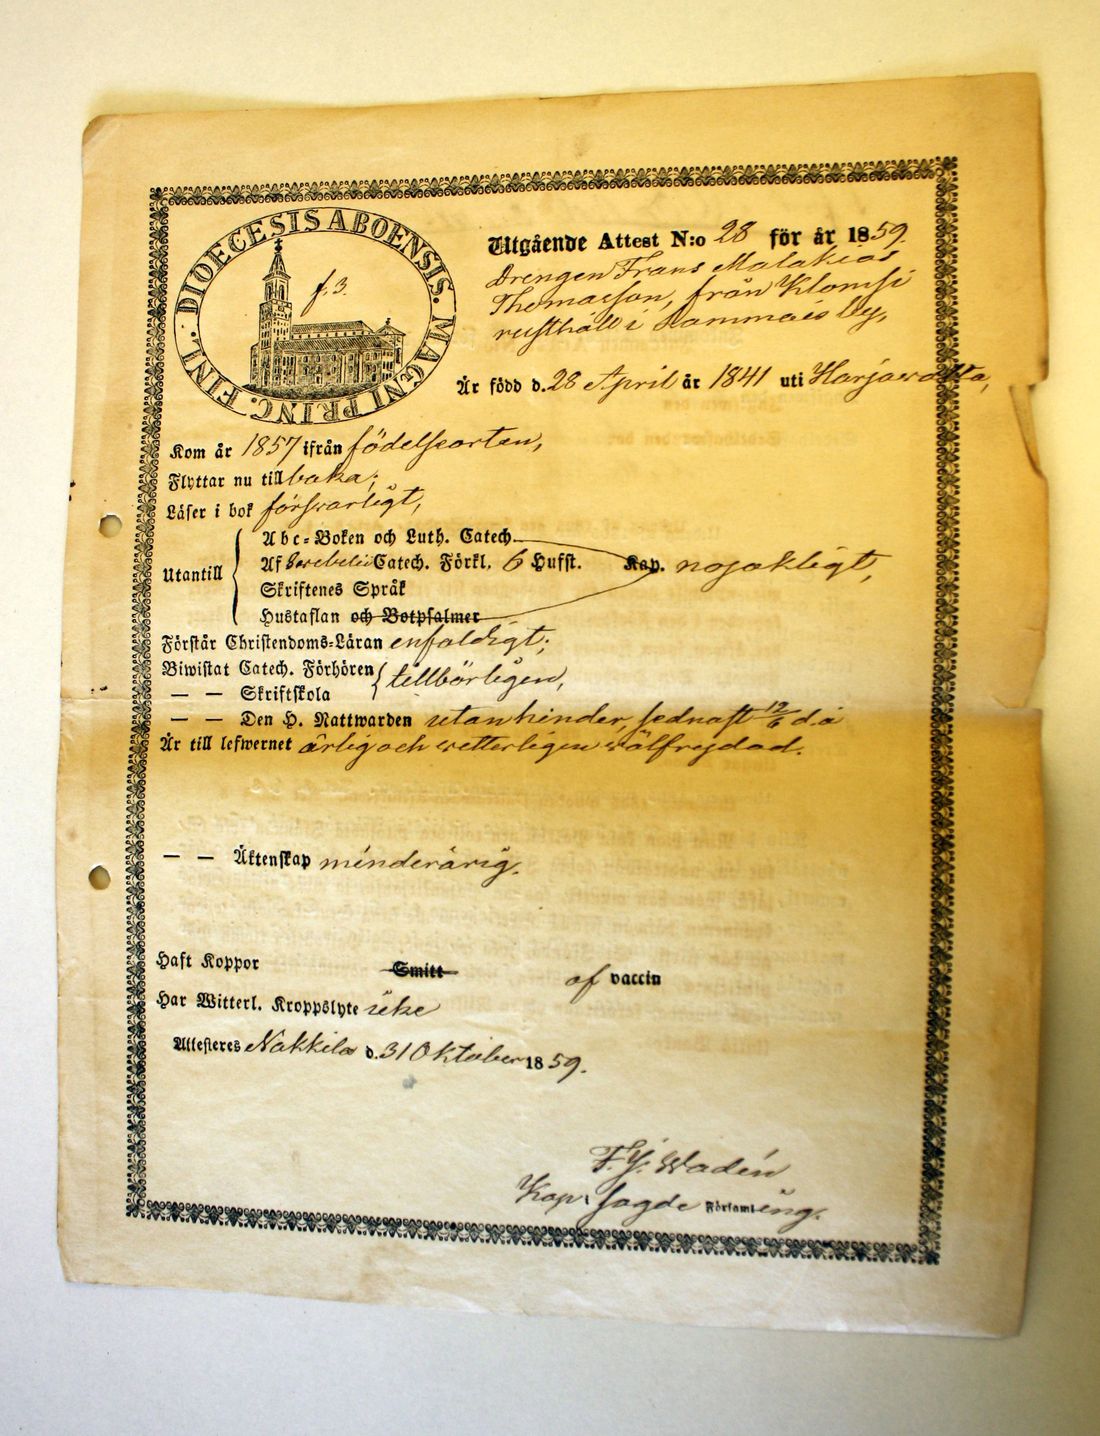 DIOECESIS ABOENSIS. MAGNI PRINC. FINL.
f. 3.
Utgående Attest N:o 28 för år 1859.
Drengen Frans Malakias
Thomasson, från Klomsi
rusthåll i Hammais by,
Är född d. 28 April år 1841 uti Harjawalta,
Kom år 1857 ifrån födelseorten,
Flyttar nu tillbaka;
Läser i bok försvarligt,
Utantill
Abc-Boken och Luth. Catech.
Af Svebelii Catech. Förkl. 6 Hufst. Kap. nöjaktigt,
Skriftenes Språk
Hustaflan och Botpsalmer
Förstår Christendoms-Läran enfaldigt;
Biwistat Catech. Förhören tillbörligen,
— — Skriftskola
— — Den H. Nattwarden utan hinder, sednast 12/6 d.å
Är till lefwernet ärlig och wetterligen wälfrejdad.
— — Äktenskap minderårig.
Haft Koppor Smitt af vaccin
Har Witterl. Kroppslyte icke
Attesteres Nakkila d. 31 Oktober 1859.
F. J. Wadén
Kap. sagde Församling.